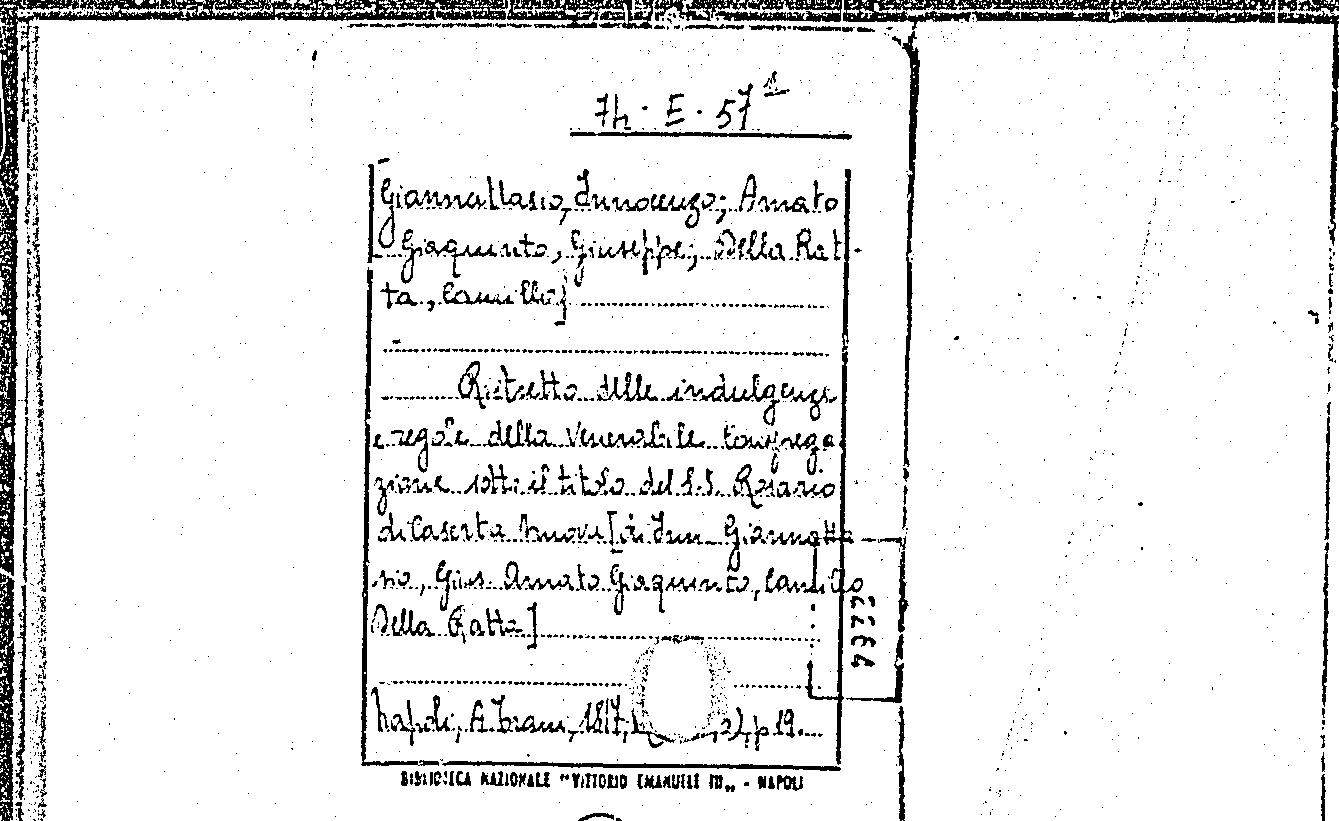 7h · E · 57 1
[Giannattasio, Innocenzo; Amato
Giaquinto, Giuseppe; Della Rat-
ta, Camillo]
Ristretto delle indulgenze
e regole della Venerabile Congrega
zione sotto il titolo del S.S. Rosario
di Caserta Nuova [di Inn. Giannatta
sio, Gius. Amato Giaquinto, Camillo
Della Ratta]
Napoli, A. Trani, 1817, p 19.
BIBLIOTECA NAZIONALE "VITTORIO EMANUELE III„ - NAPOLI